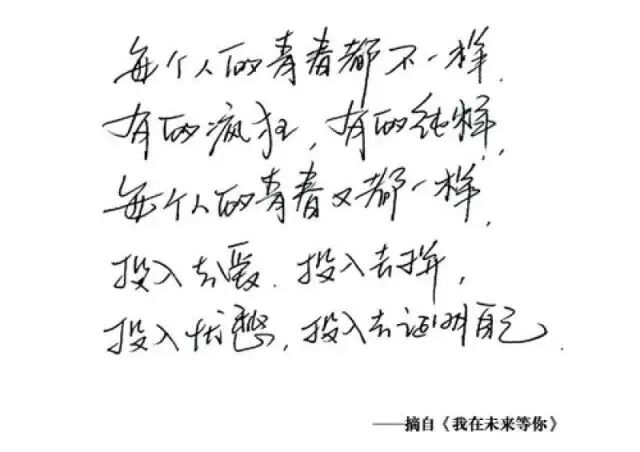 每个人的青春都不一样,
有的疯狂,有的纯粹,
每个人的青春又都一样,
投入去爱.投入去拼,
投入忧愁,投入去证明自己.
——摘自《我在未来等你》